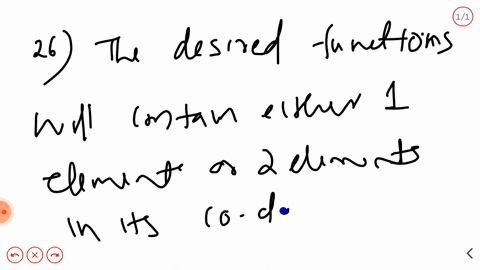 1/1
26) The desired functions
will contain either 1
element or 2 elements
in its co-d